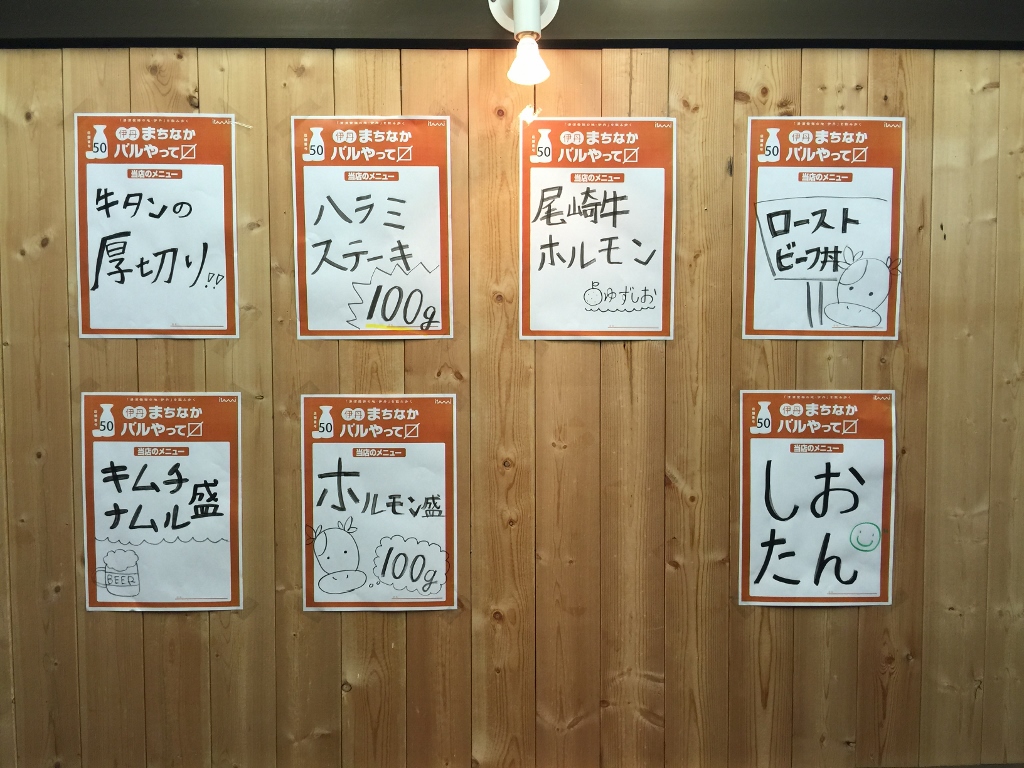 50
伊丹 まちなか
バルやって〼
当店のメニュー
牛タンの
厚切り!!
50
伊丹 まちなか
バルやって〼
当店のメニュー
ハラミ
ステーキ
100g
50
伊丹 まちなか
バルやって〼
当店のメニュー
尾崎牛
ホルモン
ゆずしお
50
伊丹 まちなか
バルやって〼
当店のメニュー
ロースト
ビーフ丼
50
伊丹 まちなか
バルやって〼
当店のメニュー
キムチ
ナムル盛
BEER
50
伊丹 まちなか
バルやって〼
当店のメニュー
ホルモン盛
100g
50
伊丹 まちなか
バルやって〼
当店のメニュー
しお
たん